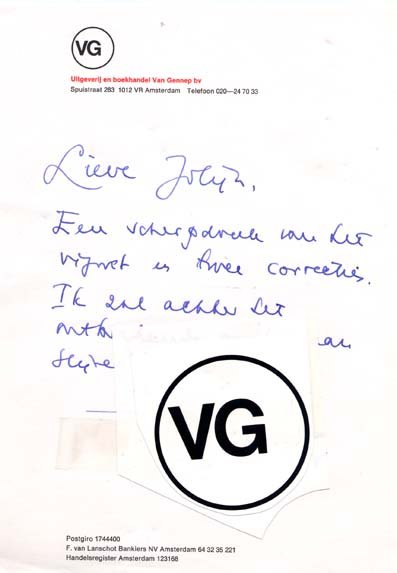 VG
Uitgeverij en boekhandel Van Gennep bv
Spuistraat 283 1012 VR Amsterdam Telefoon 020—24 70 33
Lieve Jolijn,
Een scherpdruk van het
vignet en twee correcties.
Ik zal achter het
an
VG
Postgiro 1744400
F. van Lanschot Bankiers NV Amsterdam 64 32 35 221
Handelsregister Amsterdam 123168